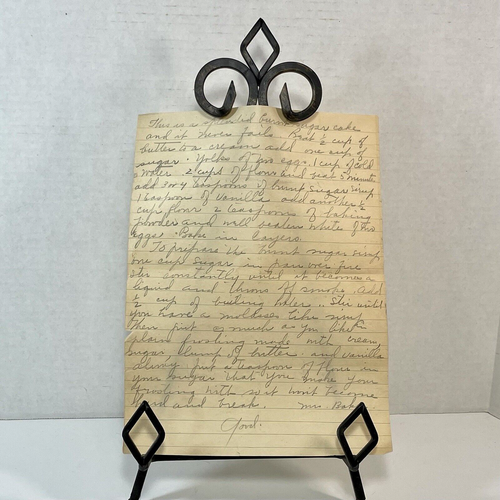 This is a splendid burnt sugar cake
and it never fails. Beat 1/2 cup of
butter to a cream add one cup of
sugar. Yolks of two eggs. 1 cup of cold
water. 2 cups of flour and beat 5 minutes
add 3 or 4 teaspoons of burnt sugar syrup
1 teaspoon of vanilla add another 1/2
cup flour 2 teaspoons of baking
powder and well beaten whites of two
eggs. Bake in layers.
To prepare the burnt sugar syrup
one cup sugar in pan over fire
stir constantly until it becomes a
liquid and throws off smoke. Add
1/2 cup of boiling water. Stir until
you have a molasses like syrup
Then put as much as you like
plain frosting made with cream,
sugar, lump of butter. and vanilla
Always put a teaspoon of flour in
your sugar that you make your
frosting with so it won't become
hard and break. Mrs.
Good.